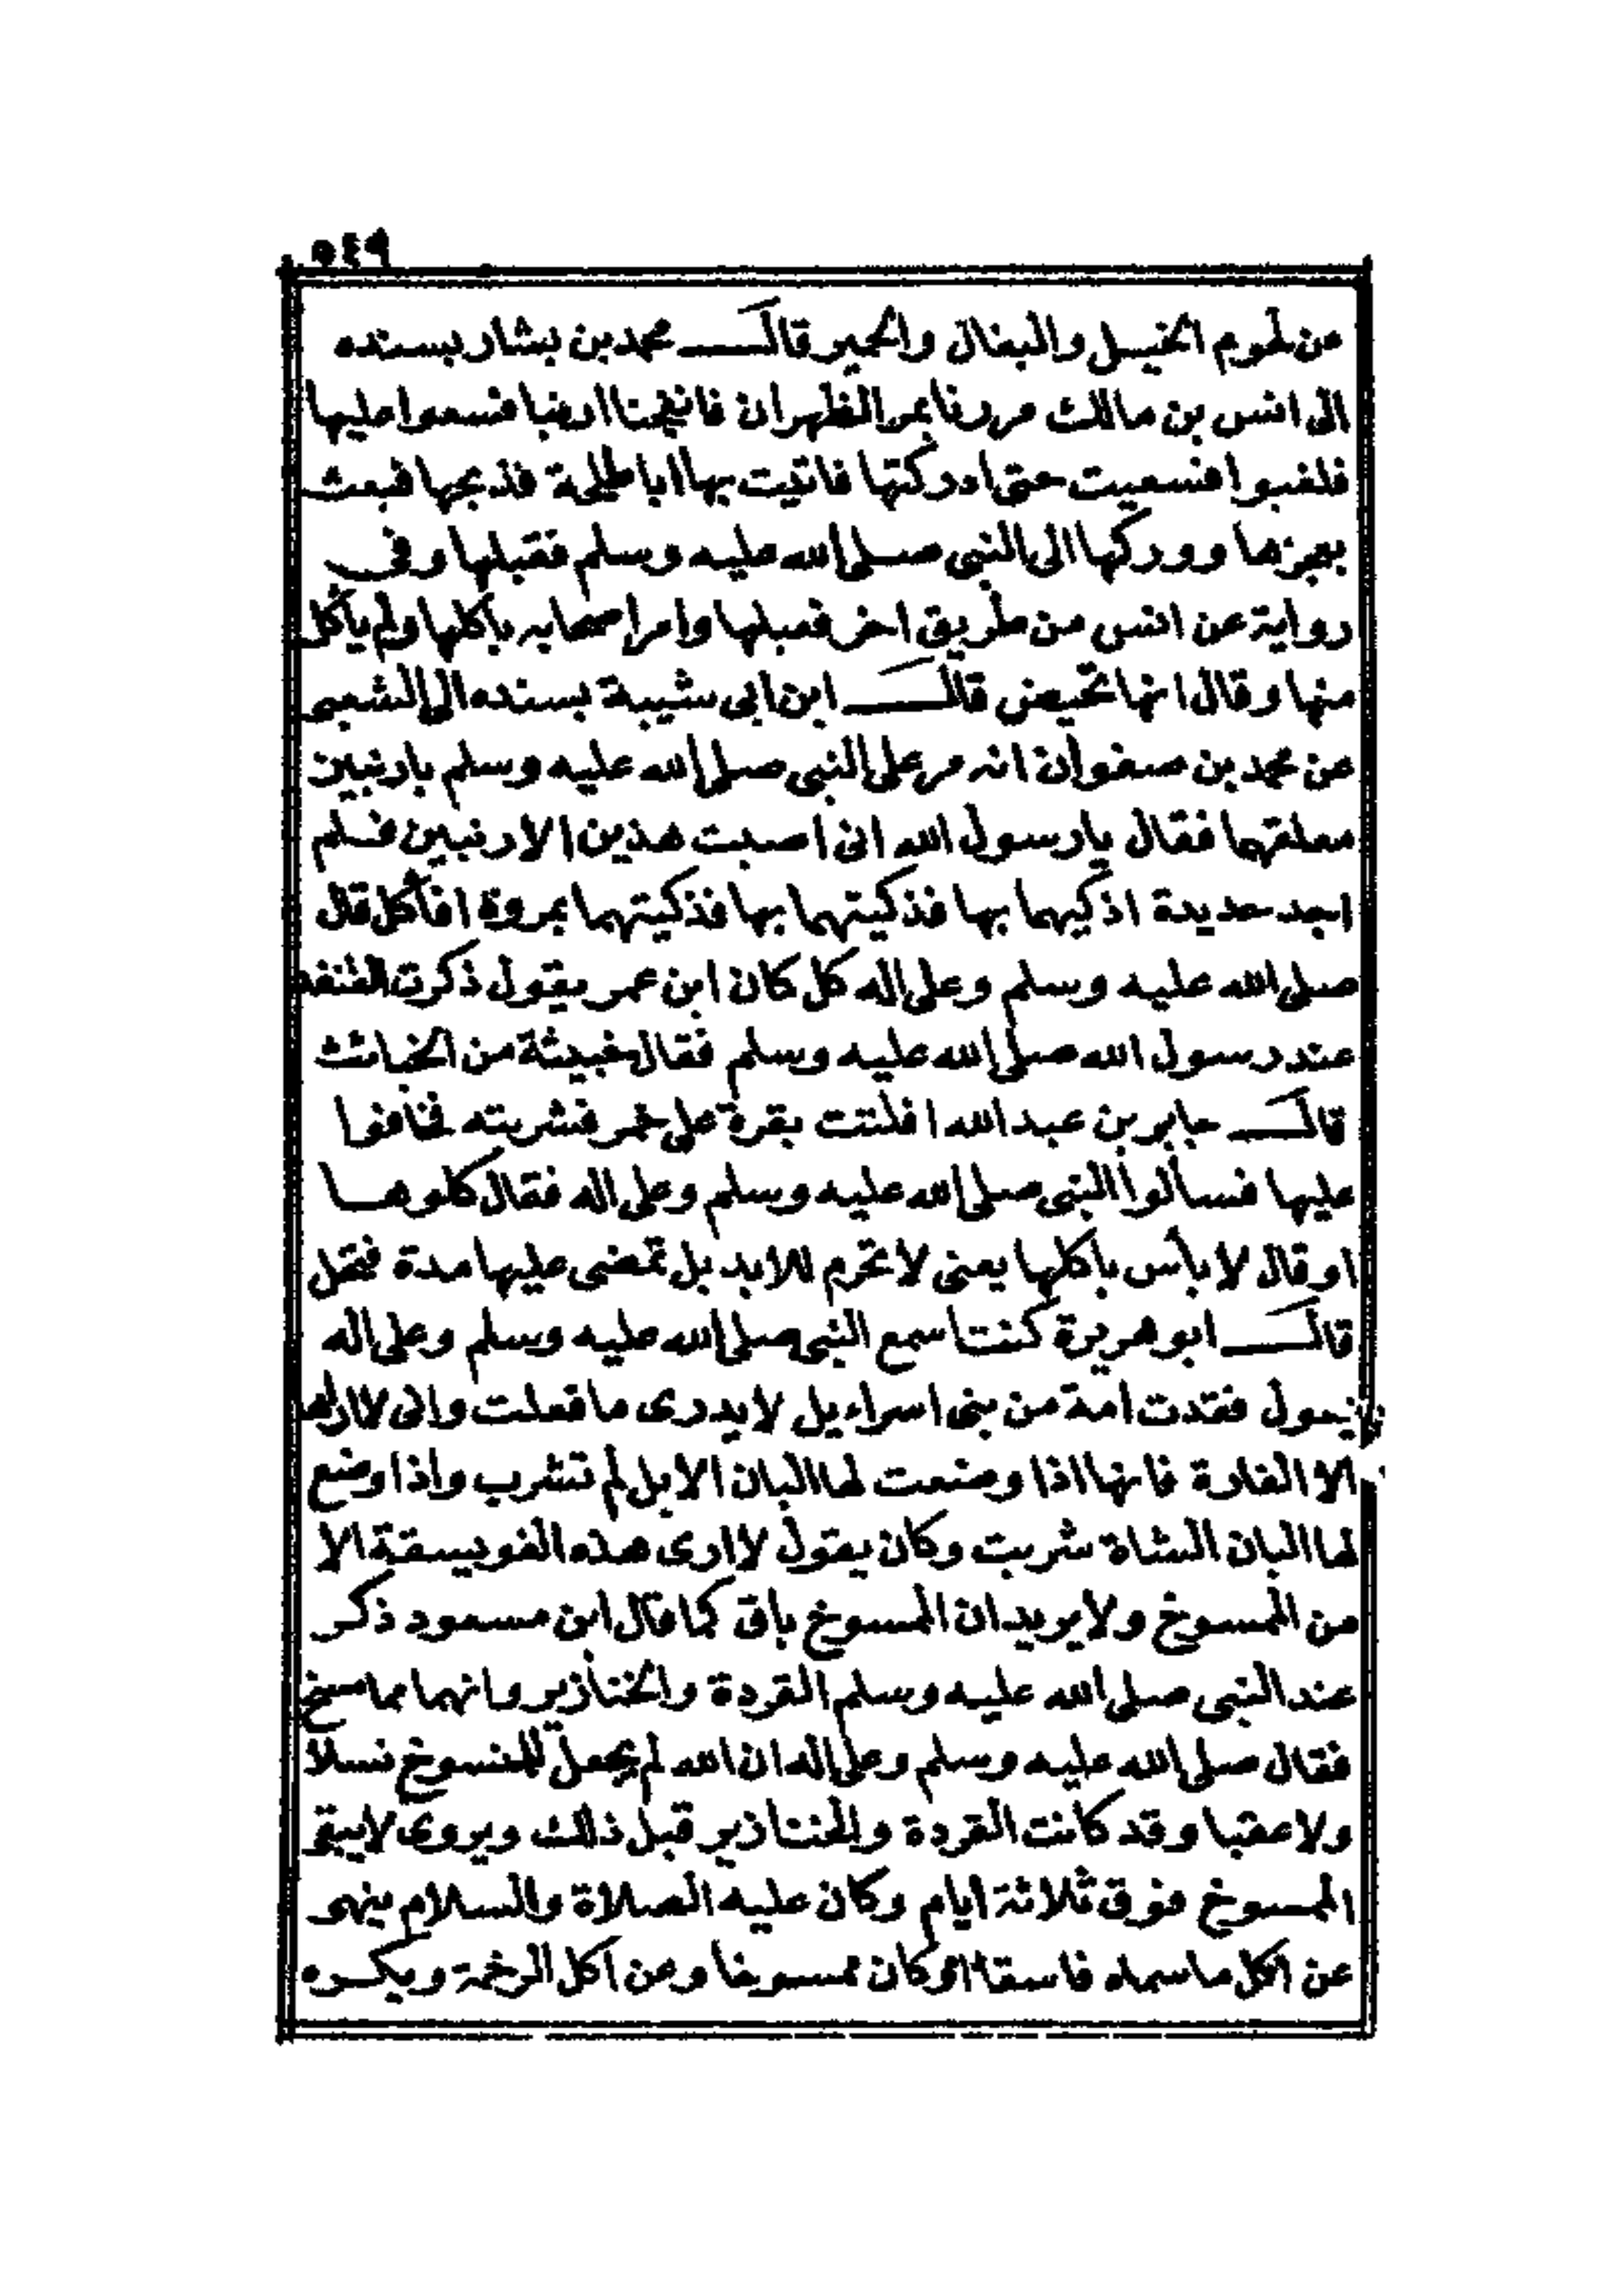 ٥٤٩
عن لحوم الخيل والبغال والحمير قال محمد بن بشار بسنده
الى انس بن مالك مررنا بمر الظهران فانفجنا ارنبا فسعوا عليها
فلغبوا فسعيت حتى ادركتها فاتيت بها ابا طلحة فذبحها فبعث
بعجزها ووركها الى النبى صلى الله عليه وسلم فقبلها وفى
رواية عن انس من طريق اخر فقبلها وامر اصحابه باكلها ولم يأكل
منها وقال انها تحيض قال ابن ابى شيبة بسنده الى الشعبى
عن محمد بن صفوان انه مر على النبى صلى الله عليه وسلم بارنبين
معلقهما فقال يا رسول الله انى اصبت هذين الارنبين فلم
اجد حديدة اذكيهما بها فذكيتهما بها فذكيتهما بمروة افأكل قال
صلى الله عليه وسلم وعلى اله كل كان ابن عمر يقول ذكرت القنفد
عند رسول الله صلى الله عليه وسلم فقال خبيثة من الخبائث
قال جابر بن عبد الله افلتت بقرة على خمر فشربته فخافوا
عليها فسألوا النبى صلى الله عليه وسلم وعلى اله فقال كلوها
او قال لا بأس باكلها يعنى لا تحرم للابد بل تمضى عليها مدة فتحل
قال ابو هريرة كنت اسمع النبى صلى الله عليه وسلم وعلى اله
يقول فقدت امة من بنى اسراءيل لا يدرى ما فعلت وانى لا اراها
الا الفارة فانها اذا وضعت لها البان الابل لم تشرب واذا وضع
لها البان الشاة شربت وكان يقول لا ارى هذه الفويسقة الا
من الممسوخ ولا يريد ان الممسوخ باق كما قال ابن مسعود ذكر
عند النبى صلى الله عليه وسلم القردة والخنازير وانهما مما مسخ
فقال صلى الله عليه وسلم وعلى اله ان الله لم يجعل للمنسوخ نسلا
ولا عقبا وقد كانت القردة والخنازير قبل ذلك ويروى لا يبقى
الممسوخ فوق ثلاثة ايام وكان عليه الصلاة والسلام ينهى
عن اكل ما سماه فاسقا او كان ممسوخا وعن اكل الرخمة ويكره